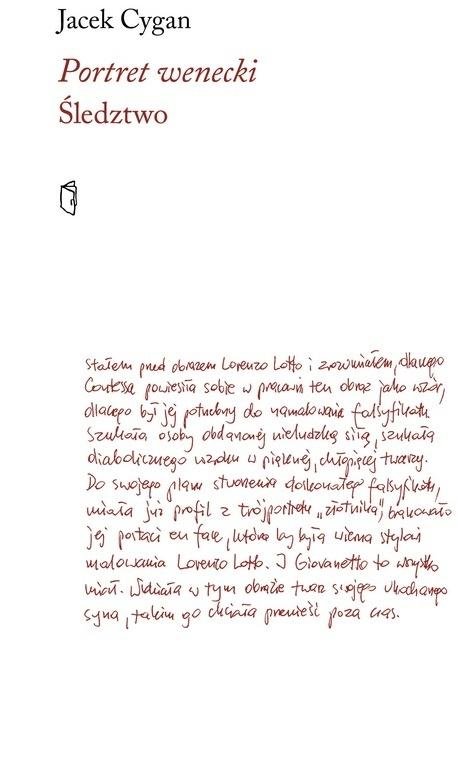 Jacek Cygan
Portret wenecki
Śledztwo
Stałem przed obrazem Lorenzo Lotto i zrozumiałem, dlaczego
Contessa powiesiła sobie w pracowni ten obraz jako wzór,
dlaczego był jej potrzebny do namalowania falsyfikatu
Szukała osoby obdarzonej nieludzką siłą, szukała
diabolicznego wzroku w pięknej, chłopięcej twarzy.
Do swojego planu stworzenia doskonałego falsyfikatu,
miała już profil z trójportretu „złotnika”, brakowało
jej postaci en face, która by była wierna stylowi
malowania Lorenzo Lotto. I Giovanetto to wszystko
miał. Widziała w tym obrazie twarz swojego ukochanego
syna, takim go chciała przenieść poza czas.